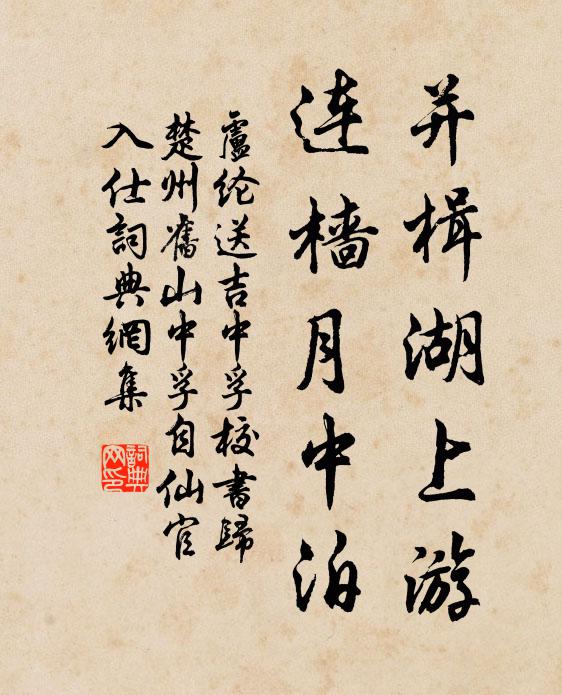 并楫湖上游
连樯月中泊
盧纶送吉中孚校書歸
楚州舊山中孚自仙官
入仕詞典網集
詞典
网印